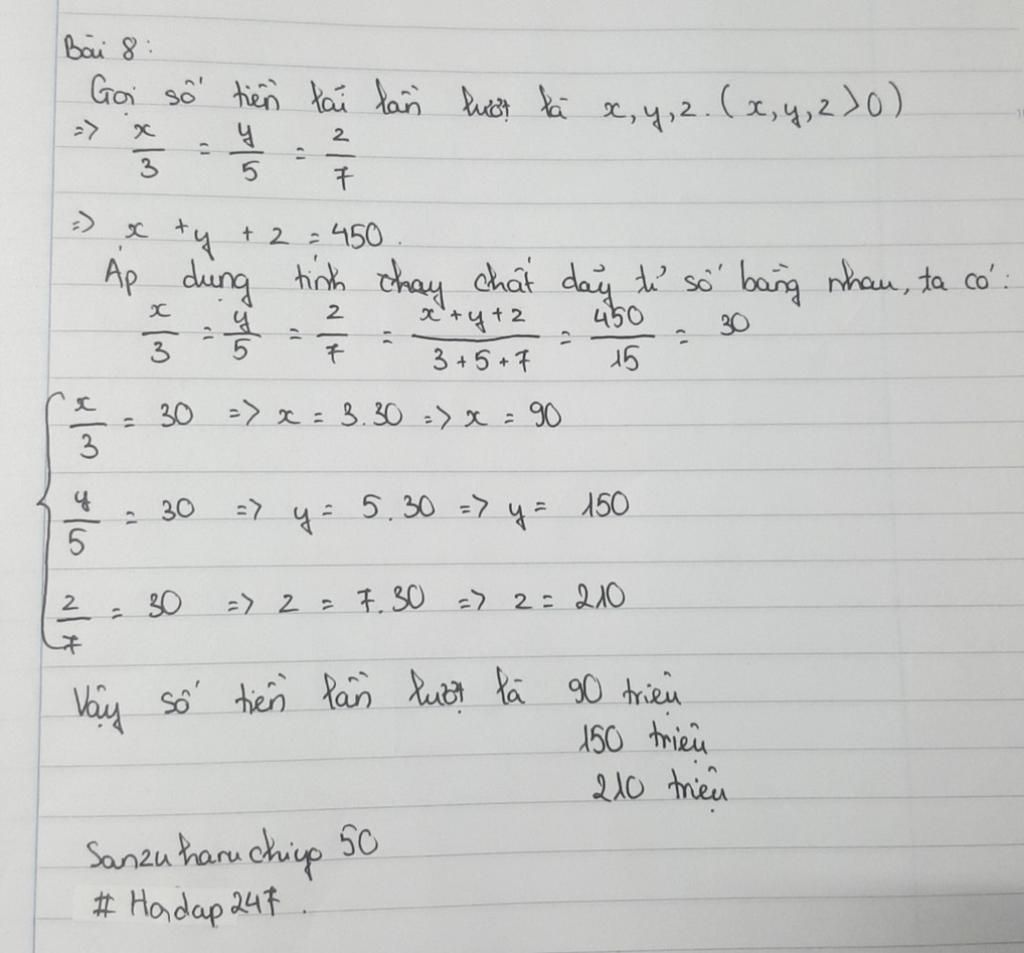 Bài 8:
Gọi số tiền lãi lần lượt là x, y, z. (x, y, z > 0)
=> x/3 = y/5 = z/7
=> x + y + z = 450.
Áp dụng tính chay chất dãy tỉ số bằng nhau, ta có:
x/3 = y/5 = z/7 = (x + y + z)/(3 + 5 + 7) = 450/15 = 30
x/3 = 30 => x = 3.30 => x = 90
y/5 = 30 => y = 5.30 => y = 150
z/7 = 30 => z = 7.30 => z = 210
Vậy số tiền lần lượt là 90 triệu
150 triệu
210 triệu
Sanzu haru chiyo 50
# Hoidap 247.